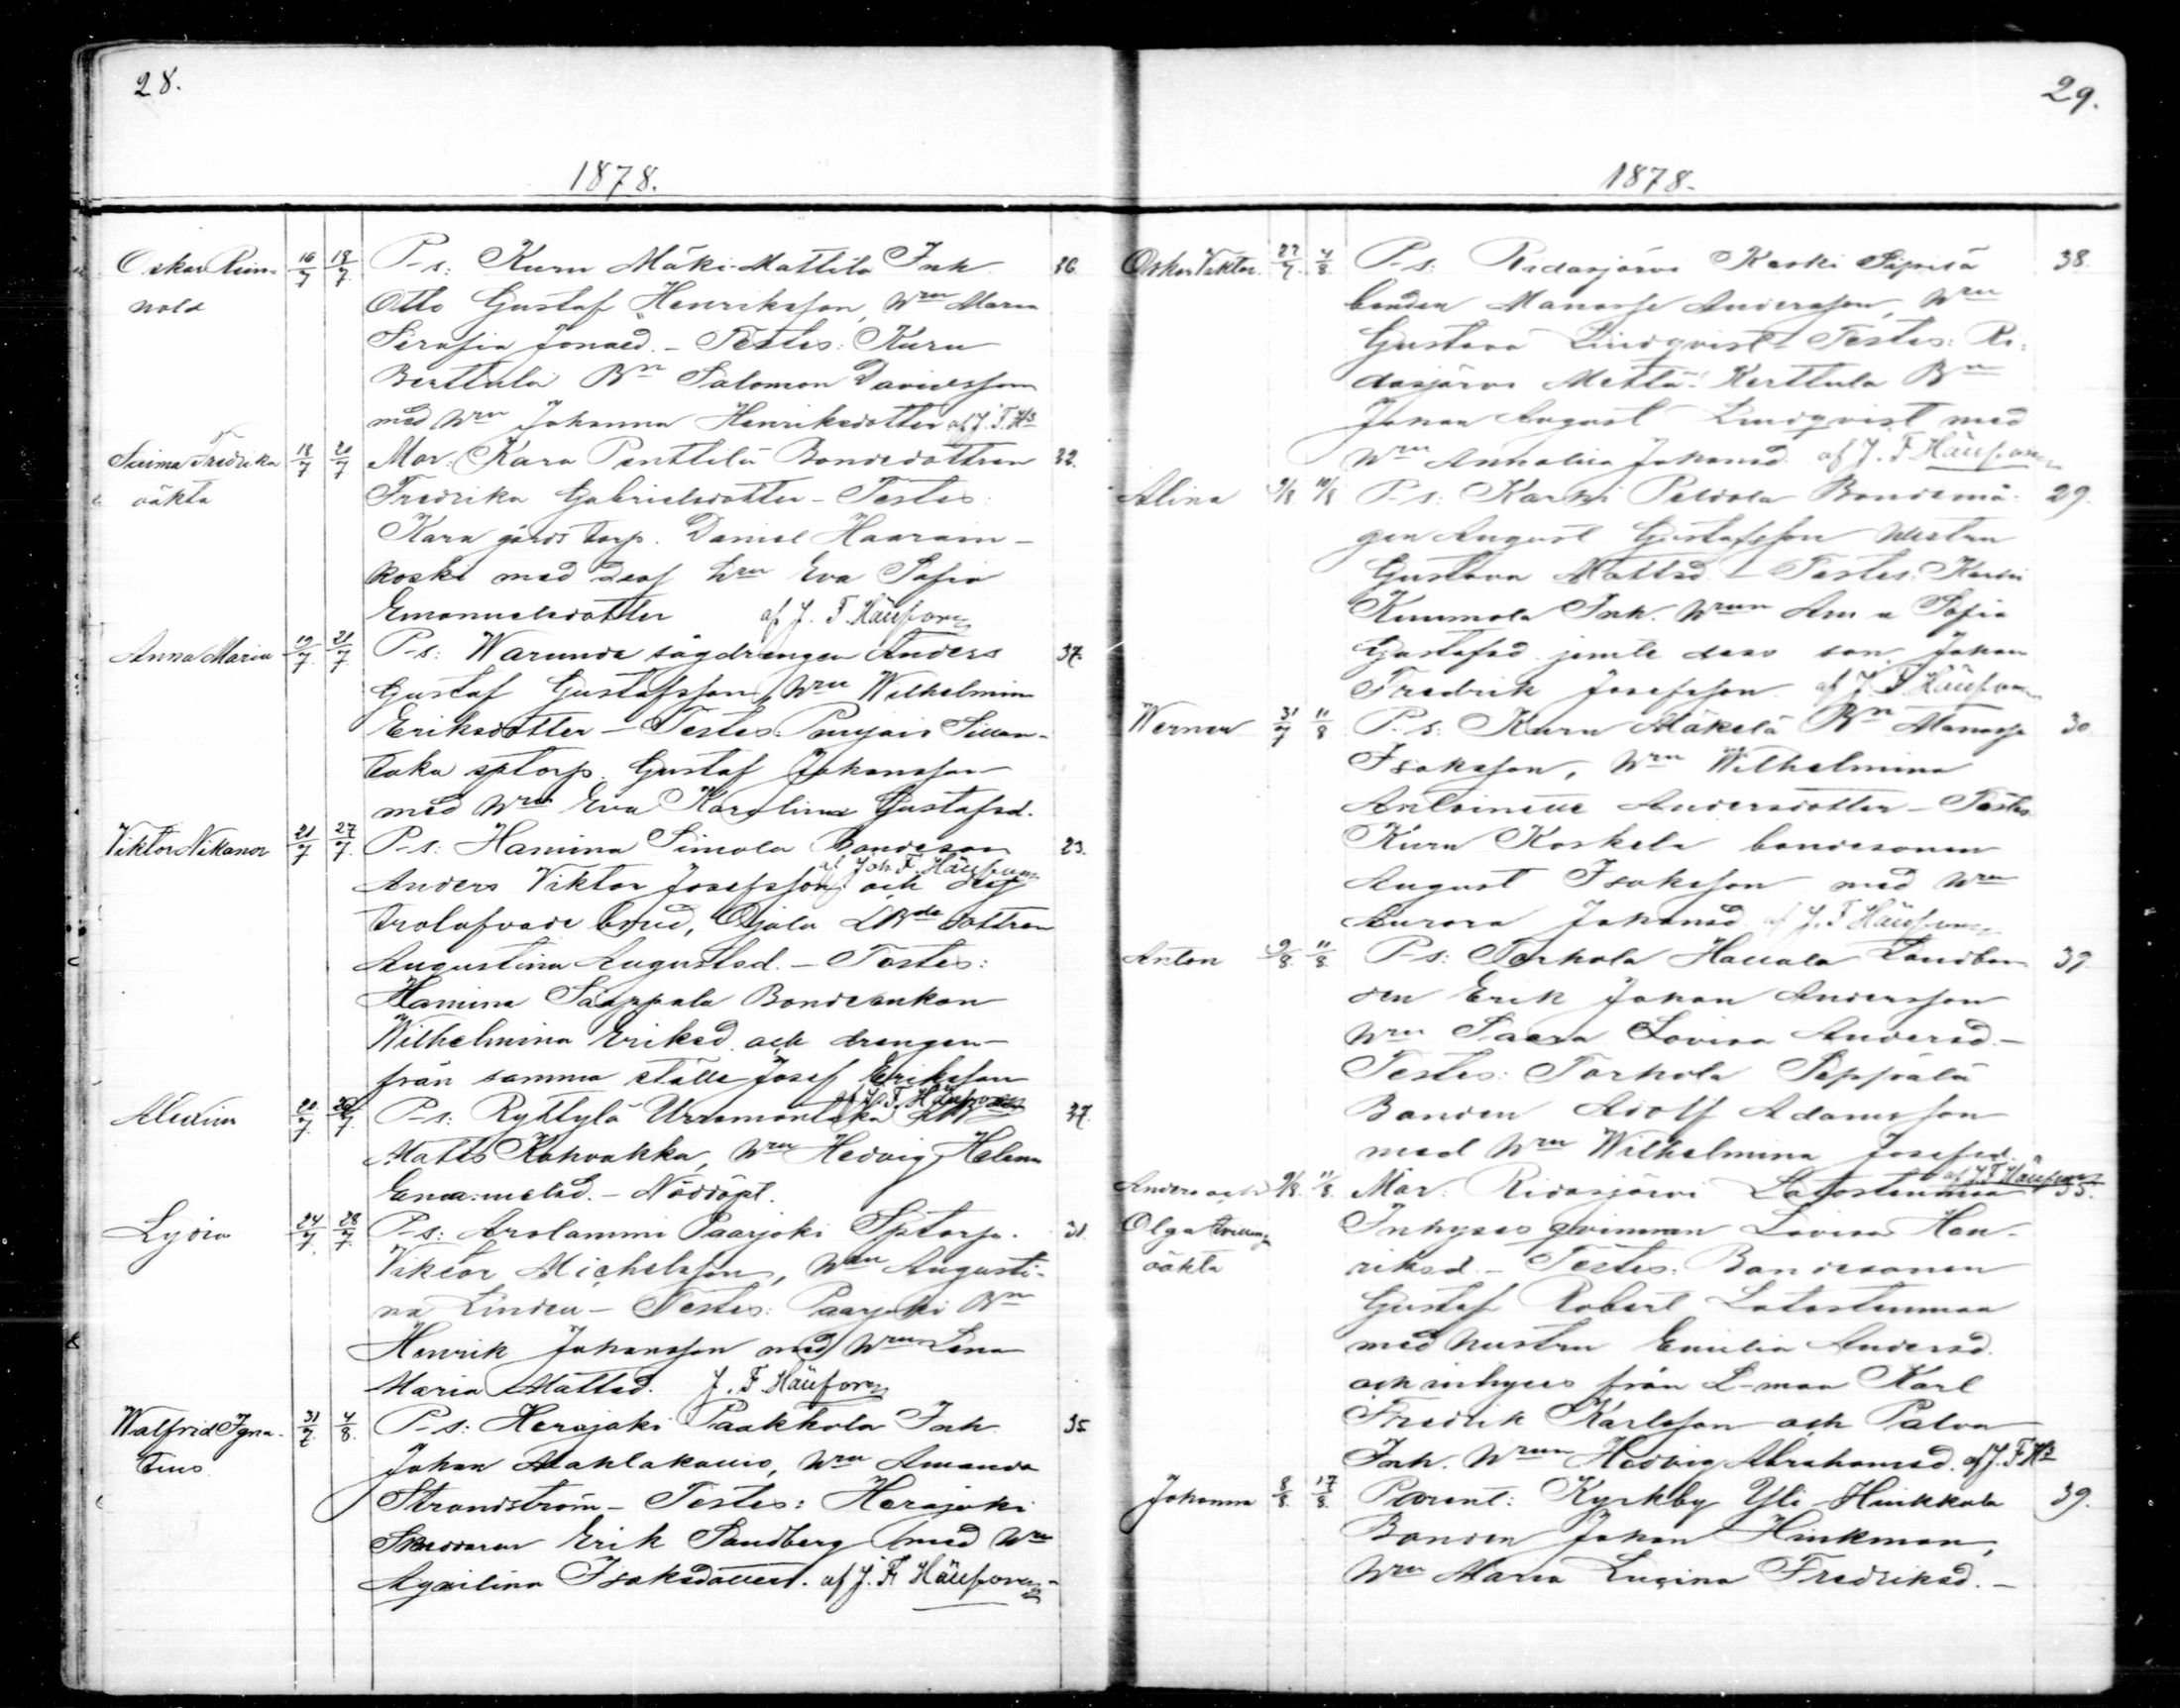 28.
1878.
Oskar Rein- 16/7 18/7 P-s: Kuru Mäki-Mattila Inh. 36.
nold Otto Gustaf Henriksson, Wru Maria
Serafia Jonaed. - Testes: Kuru
Berttula Bn Salomon Davidsson
med Wru Johanna Henriksdotter af J. F. Hs
Saima Fredrika 18/7 20/7 Mor: Kara Penttilä Bondedottren 32.
oäkta Fredrika Gabrielsdotter - Testes:
Kara gårds torp. Daniel Haarain-
koski med dess hru Eva Sofia
Emanuelsdotter af J. F. Häyrén
Anna Maria 19/7 21/7 P-s: Warunda sågdrengen Anders 37.
Gustaf Gustafsson, Wru Wilhelmina
Eriksdotter - Testes: Sillan-
taka sptorp. Gustaf Johansson
med Wru Eva Karolina Gustafsd.
Viktor Nikanor 21/7 27/7 P-s: Hamina Simola Bondeson 23.
Anders Viktor Josefsson och dess
trolofvade brud, Ojala LBde dottren
Augustina Augustsd. - Testes:
Hamina Saappala Bondeenkan
Wilhelmina Eriksd. och drengen
från samma ställe Josef Eriksson
20/7 28/7 P-s: Ryttylä 37.
Matts Kahvakka, Wru Hedvig Helena
Emanuelsd. - Nöddöpt.
Lydia 24/7 28/7 P-s: Arolammi Paarjoki Sptorp. 31
Viktor Michelsson, Wru Augusti-
na Linden - Testes: Paarjoki Bn
Henrik Johansson med Wru Lena
Maria Mattsd. J. F.
Walfrid Igna- 31/7 4/8 P-s: Herajoki Paakkola Inh. 35
tius Johan Wru Amanda
Strandström - Testes: Herajoki
Skräddaren Erik Sandberg med Wru
Axelina Isaksdotter. af J. F.
29.
1878.
Oskar Viktor 27/7 4/8 P-s: Ridasjärvi Keski Sipilä 38.
bonden Manasse Andersson, Wru
Gustava Lindqvist - Testes: Ri-
dasjärvi Mettä-Kerttula Bn
Johan August Lindqvist med
Wru Annalisa Johansd. af J. F.
Alina 9/8 10/8 P-s: Karhi Peltola Bondemå- 29.
gen August Gustafsson hustru
Gustava Mattsd. - Testes: Karhi
Kummola Inh. Wrun Anna Sofia
Gustafsd. jemte dess son Johan
Fredrik Josefsson af J. F.
Werner 31/7 11/8 P-s: Kuru Mäkelä Bn Manasse 30
Isaksson, Wru Wilhelmina
Antoinette Andersdotter - Testes
Kuru Koskela bondesonen
August Isaksson med Wru
Aurora Johansd. af J. F.
Anton 9/8 11/8 P-s: Torhola Landbon- 39.
den Erik Johan Andersson
Wru Sara Lovisa Andersd. -
Testes: Torhola Seppälä
Bonden Adolf Adamsson
med Wru Wilhelmina Josefsd.
af J. F.
Anders och 9/8 11/8 Mor: Ridasjärvi Latostenmaa 35.
Olga tvilling Inhyses qvinnan Lovisa Hen-
oäkta riksd. - Testes: Bondesonen
Gustaf Robert Latostenmaa
med hustru Emilia Andersd.
och inhyses från L-maa Karl
Fredrik Karlsson och Palva
Inh. Wrun Hedvig Abrahamsd. af J. F. Hs
Johanna 8/8 17/8 Parent: Kyrkby Yli-Hinkkala 39.
Bonden Johan Hinkman,
Wru Maria Lusina Fredriksd. -